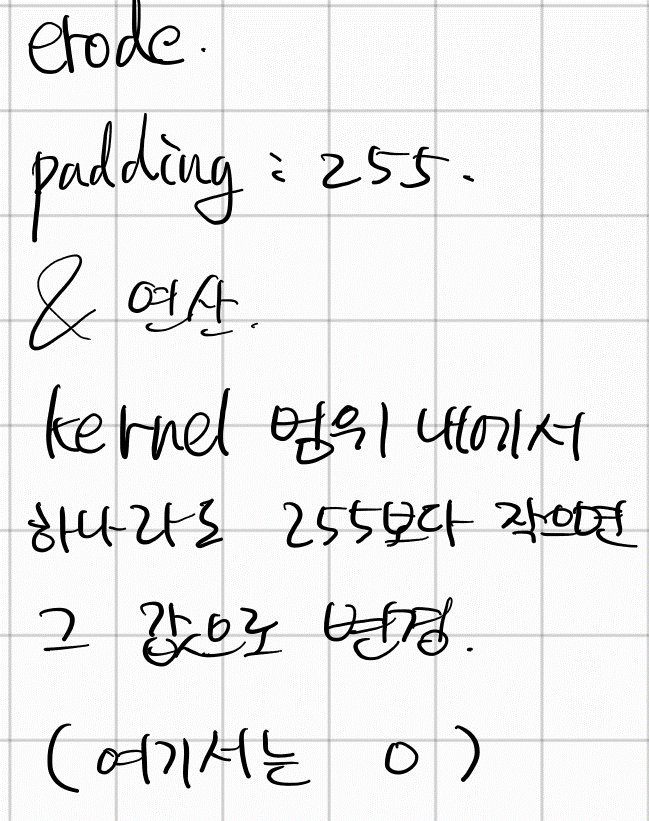 erode.
padding : 255.
& 연산.
kernel 범위 내에서
하나라도 255보다 작으면
그 값으로 변경.
(여기서는 0)